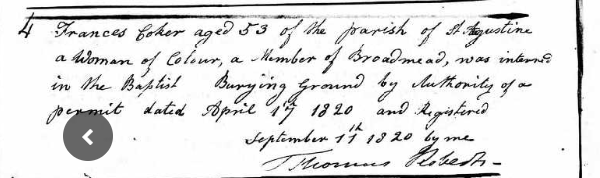 4 Frances Coker aged 53 of the parish of St Agustine
a Woman of Colour, a Member of Broadmead, was interred
in the Baptist Burying Ground by Authority of a
permit dated April 17 1820 and Registered
September 11th 1820 by me
Thomas Roberts